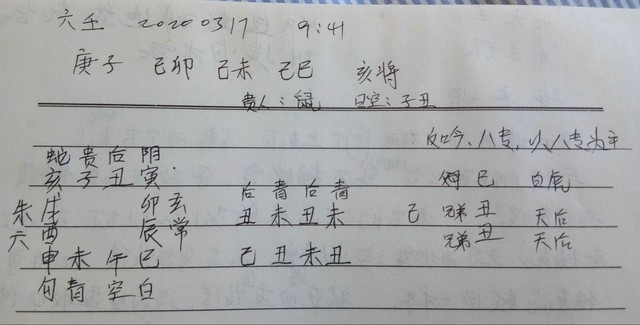 六壬 20200317 9:41
庚子 己卯 己未 己巳 亥将
贵人: 日空:子丑
反吟、八专,以八专为主
蛇 贵 后 阴
亥 子 丑 寅 巳 白虎
后 青 后 青
朱 戌 卯 玄 丑 未 丑 未 己 兄弟 丑 天后
六 酉 辰 常 兄弟 丑 天后
申 未 午 巳 己 丑 未 丑
勾 青 空 白